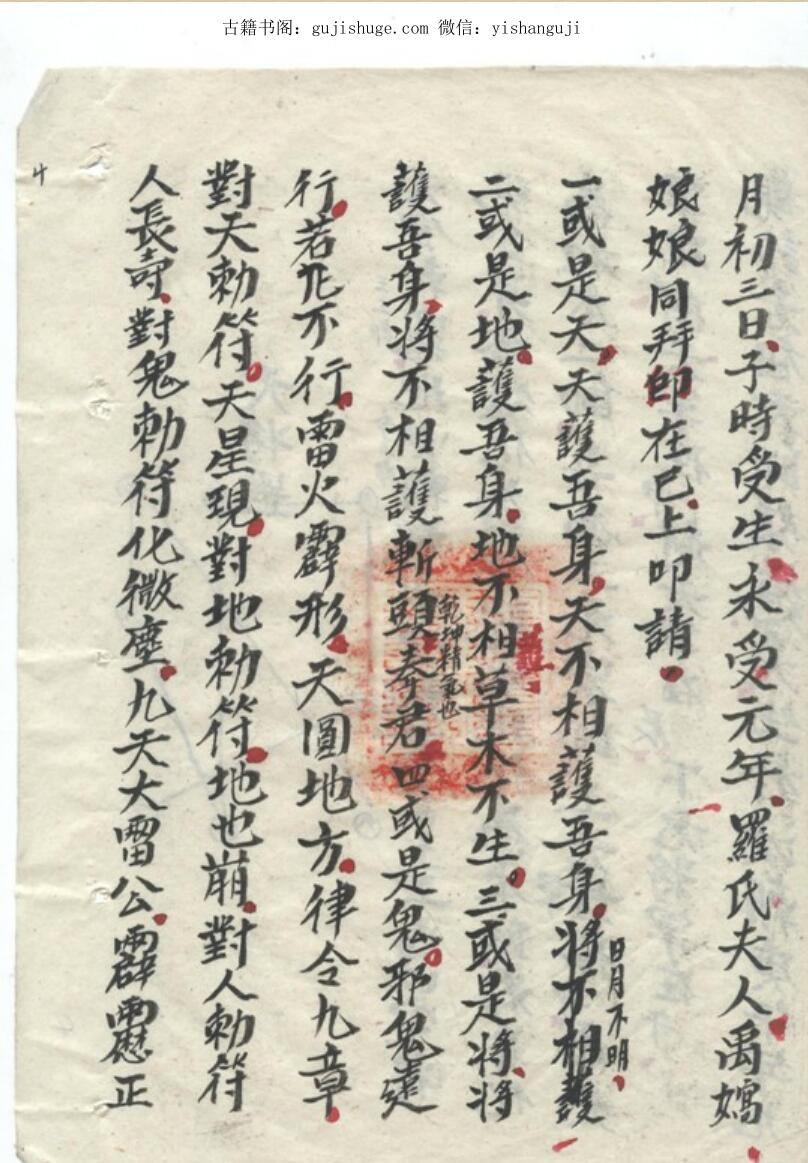 古籍书阁：gujishuge.com 微信：yishanguji
月初三日子時受生永受元年羅氏夫人禹嫣
娘娘同拜印在已上叩請
一或是天天護吾身天不相護吾身將不相護
日月不明
二或是地護吾身地不相草木不生三或是將將
護
護吾身將不相護斬頭奉君四或是鬼邪鬼遠
乾坤精氣也
行若凡不行雷火霹形天圓地方律令九章
對天勅符天星現對地勅符地也崩對人勅符
人長壽對鬼勅符化微塵九天大雷公霹靂正
4